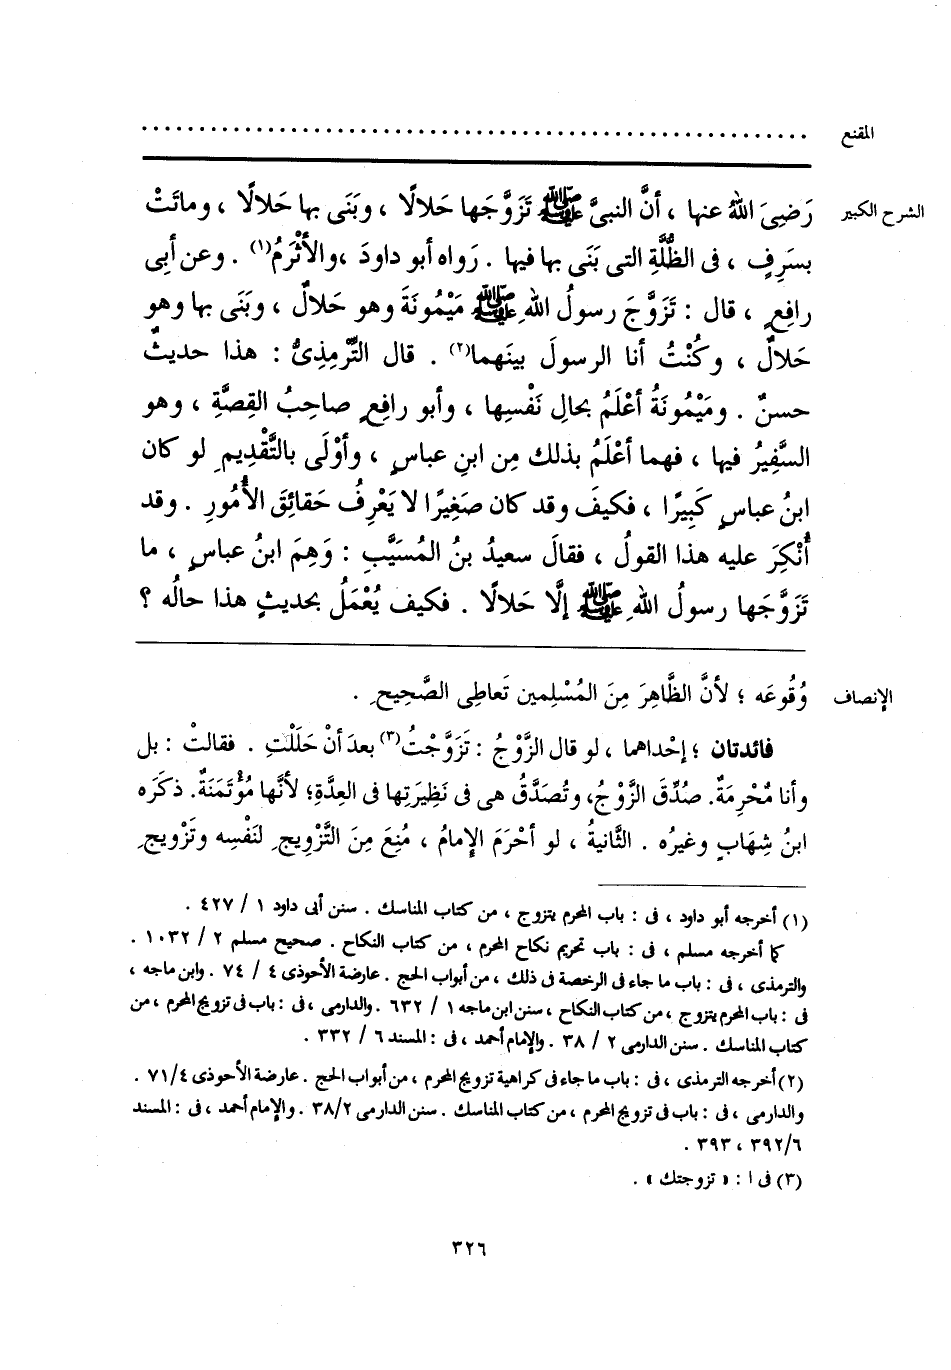 المقنع ......................................................
الشرح الكبير رَضِىَ اللهُ عنها ، أنَّ النبىَّ ﷺ تَزَوَّجَها حَلالًا ، وبَنَى بها حَلالًا ، وماتَتْ
بسَرِفٍ ، فى الظُّلَّةِ التى بَنَى بها فيها . رَواه أبو داودَ ،والأثْرَمُ(١) . وعن أبى
رافِعٍ ، قال : تَزَوَّجَ رسولُ اللهِ ﷺ مَيْمُونَةَ وهو حَلالٌ ، وبَنَى بها وهو
حَلالٌ ، وكُنْتُ أنا الرسولَ بينَهما(٢) . قال التِّرْمِذِىُّ : هذا حديثٌ
حسنٌ . ومَيْمُونَةُ أعْلَمُ بحالِ نَفْسِها ، وأبو رافِعٍ صاحِبُ القِصَّةِ ، وهو
السَّفِيرُ فيها ، فهما أعْلَمُ بذلك مِن ابنِ عباسٍ ، وأوْلَى بالتَّقْدِيمِ لو كان
ابنُ عباسٍ كَبِيرًا ، فكيفَ وقد كان صَغِيرًا لا يَعْرِفُ حَقائِقَ الأُمُورِ . وقد
أُنْكِرَ عليه هذا القولُ ، فقالَ سعيدُ بنُ المُسَيَّبِ : وَهِمَ ابنُ عباسٍ ، ما
تَزَوَّجَها رسولُ اللهِ ﷺ إلَّا حَلالًا . فكيف يُعْمَلُ بحديثٍ هذا حالُه ؟
الإنصاف وُقُوعَه ؛ لأنَّ الظَّاهِرَ مِنَ المُسْلِمين تَعاطِى الصَّحِيحِ .
فائدتان ؛ إحْداهما ، لو قال الزَّوْجُ : تَزَوَّجْتُ(٣) بعدَ أنْ حَلَلْتِ . فقالتْ : بل
وأنا مُحْرِمَةٌ. صُدِّقَ الزَّوْجُ، وتُصَدَّقُ هى فى نَظِيرَتِها فى العِدَّةِ؛ لأنَّها مُؤْتَمَنَةٌ. ذكَرَه
ابنُ شِهَابٍ وغيرُه . الثَّانيةُ ، لو أحْرَمَ الإمامُ ، مُنِعَ مِنَ التَّزْوِيجِ لنَفْسِه وتَزْويجِ
(١) أخرجه أبو داود ، فى : باب المحرم يتزوج ، من كتاب المناسك . سنن أبى داود ١ / ٤٢٧ .
كما أخرجه مسلم ، فى : باب تحريم نكاح المحرم ، من كتاب النكاح . صحيح مسلم ٢ / ١٠٣٢ .
والترمذى ، فى : باب ما جاء فى الرخصة فى ذلك ، من أبواب الحج . عارضة الأحوذى ٤ / ٧٤ . وابن ماجه ،
فى : باب المحرم يتزوج ، من كتاب النكاح ، سنن ابن ماجه ١ / ٦٣٢ . والدارمى ، فى : باب فى تزويج المحرم ، من
كتاب المناسك . سنن الدارمى ٢ / ٣٨ . والإمام أحمد ، فى : المسند ٦ / ٣٣٢ .
(٢) أخرجه الترمذى ، فى : باب ما جاء فى كراهية تزويج المحرم ، من أبواب الحج . عارضة الأحوذى ٧١/٤ .
والدارمى ، فى : باب فى تزويج المحرم ، من كتاب المناسك . سنن الدارمى ٣٨/٢ . والإمام أحمد ، فى : المسند
٣٩٢/٦ ، ٣٩٣ .
(٣) فى ا : « تزوجتك » .
٣٢٦